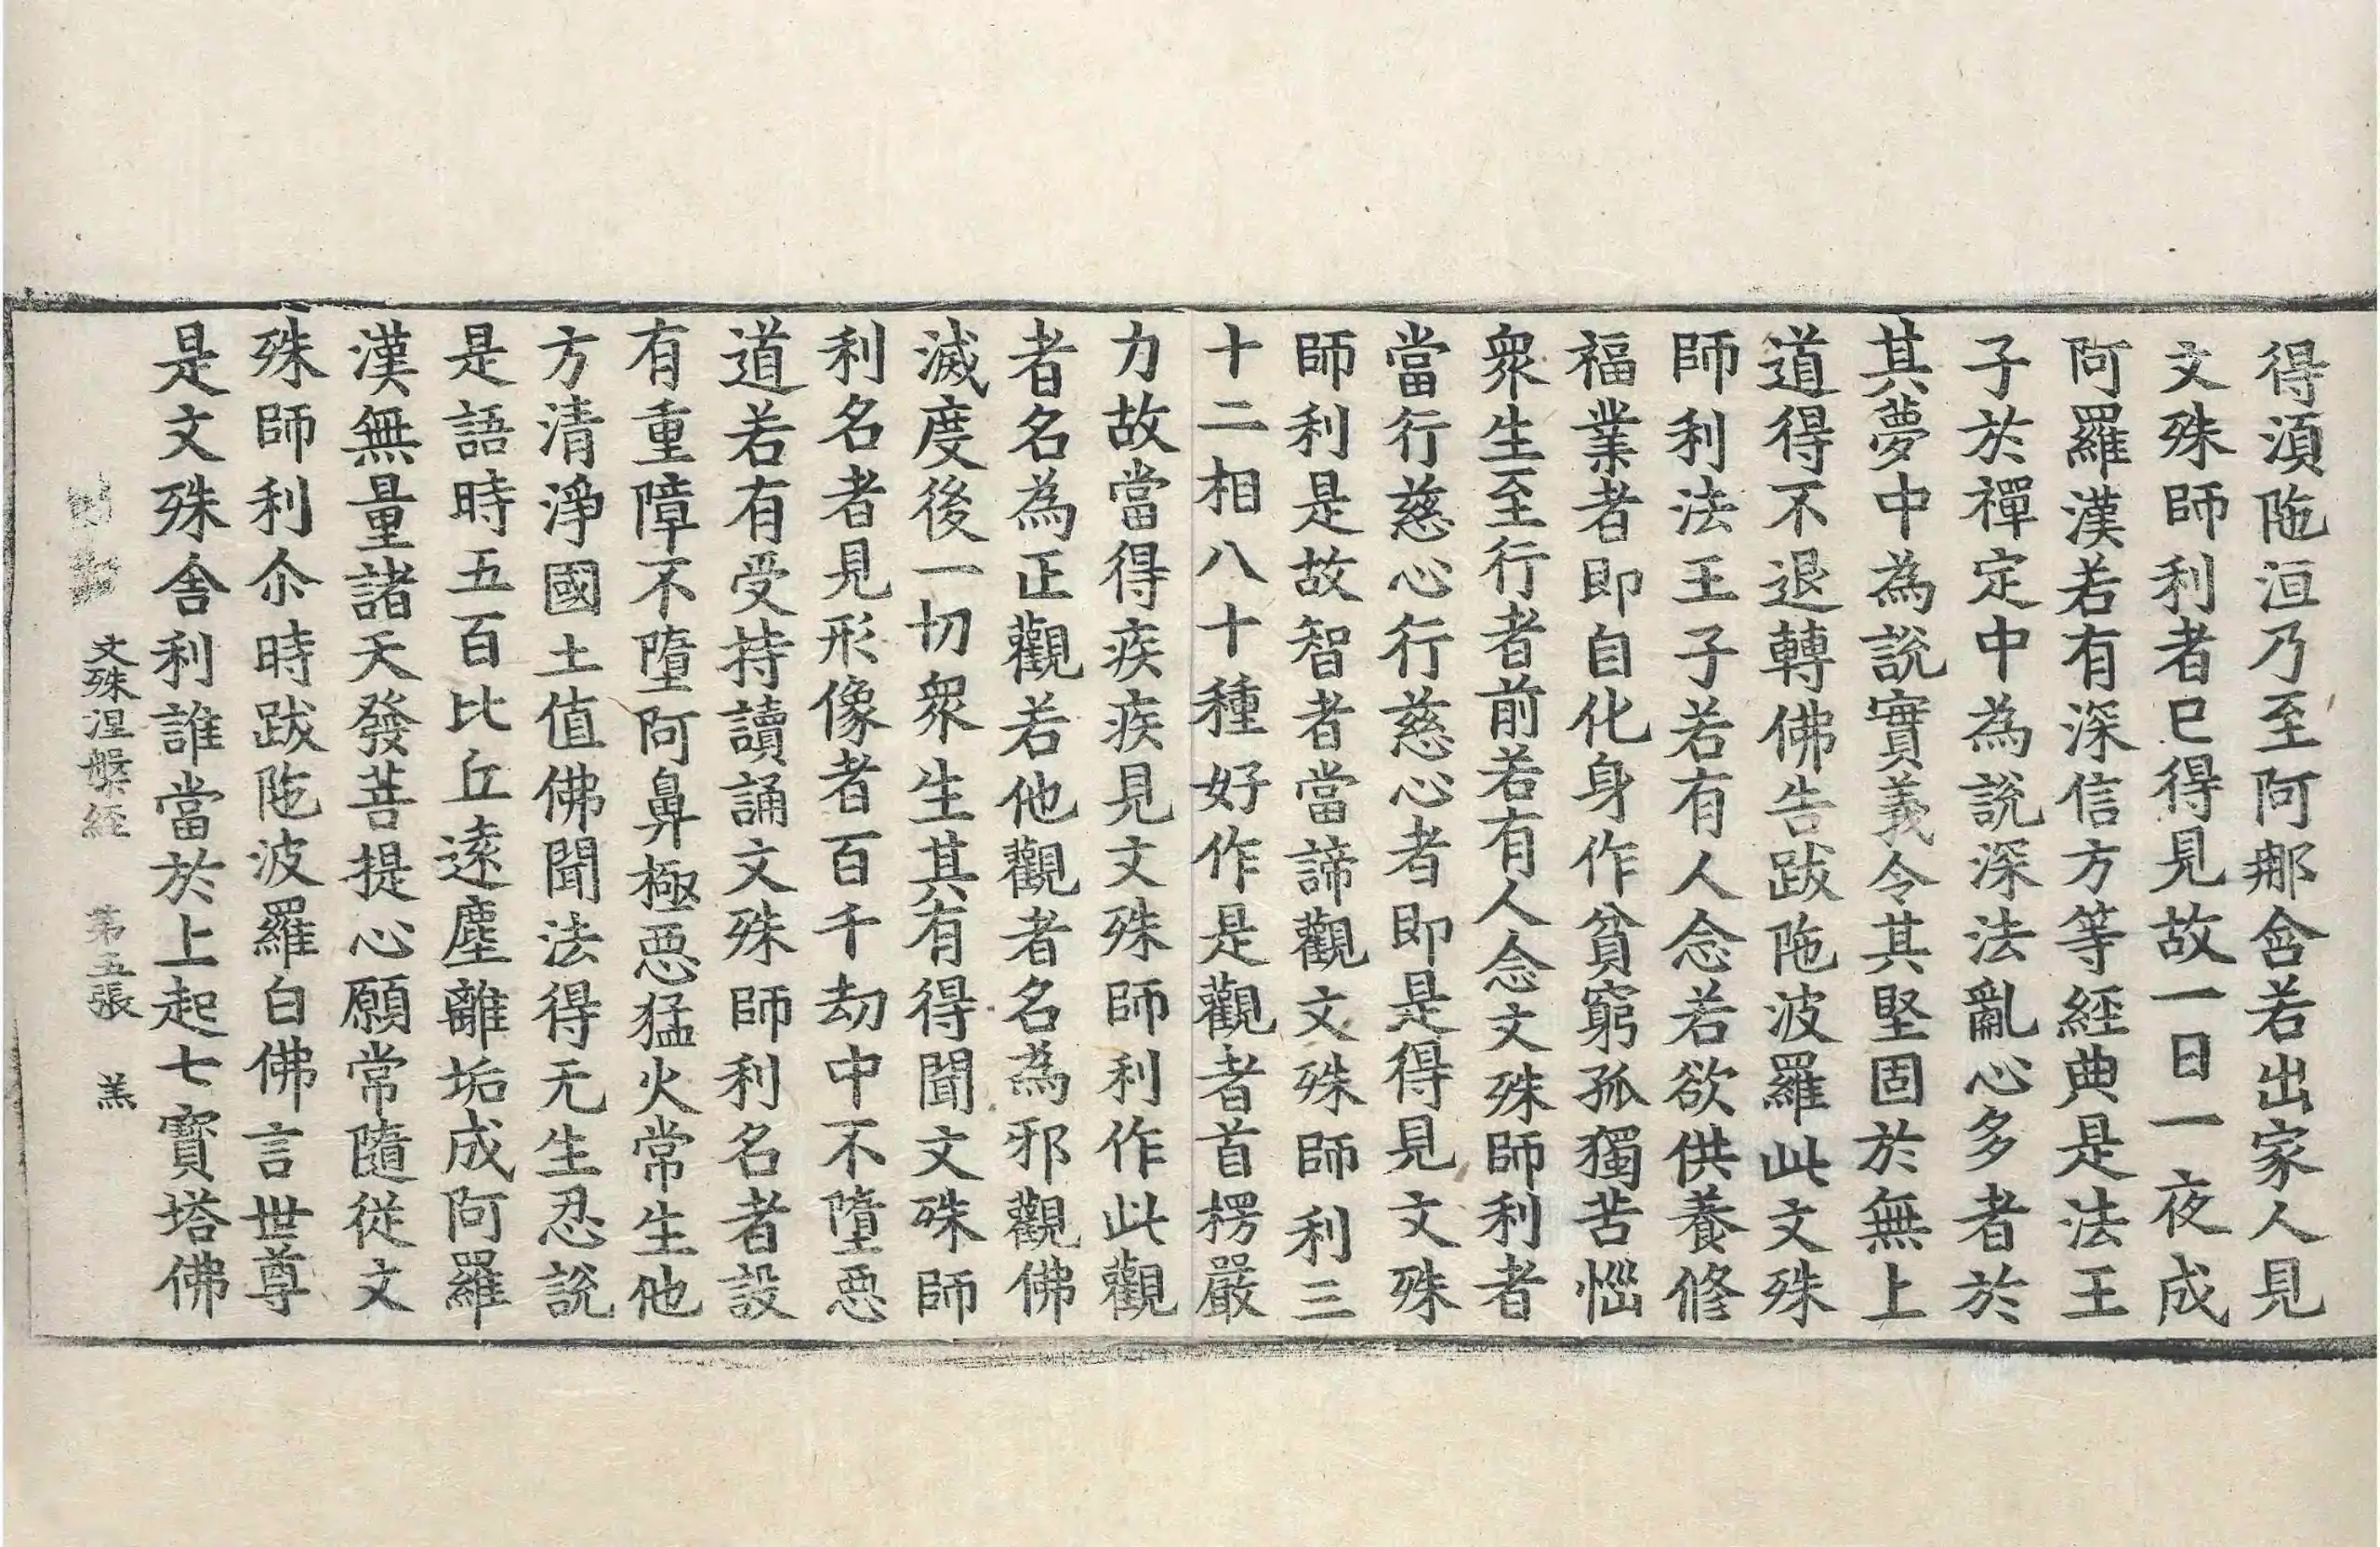 得湏陁洹乃至阿那含若出家人見
文殊師利者已得見故一日一夜成
阿羅漢若有深信方等經典是法王
子於禪定中為説深法亂心多者於
其夢中為説實義令其堅固於無上
道得不退轉佛告跋陁波羅此文殊
師利法王子若有人念若欲供養修
福業者即自化身作貧窮孤獨苦惱
衆生至行者前若有人念文殊師利者
當行慈心行慈心者即是得見文殊
師利是故智者當諦觀文殊師利三
十二相八十種好作是觀者首楞嚴
力故當得疾疾見文殊師利作此觀
者名為正觀若他觀者名為邪觀佛
滅度後一切衆生其有得聞文殊師
利名者見形像者百千劫中不墮惡
道若有受持讀誦文殊師利名者設
有重障不墮阿鼻極惡猛火常生他
方清淨國土值佛聞法得无生忍説
是語時五百比丘遠塵離垢成阿羅
漢無量諸天發菩提心願常隨從文
殊師利尒時跋陁波羅白佛言世尊
是文殊舍利誰當於上起七寳塔佛
文殊涅槃經 第五張 羔